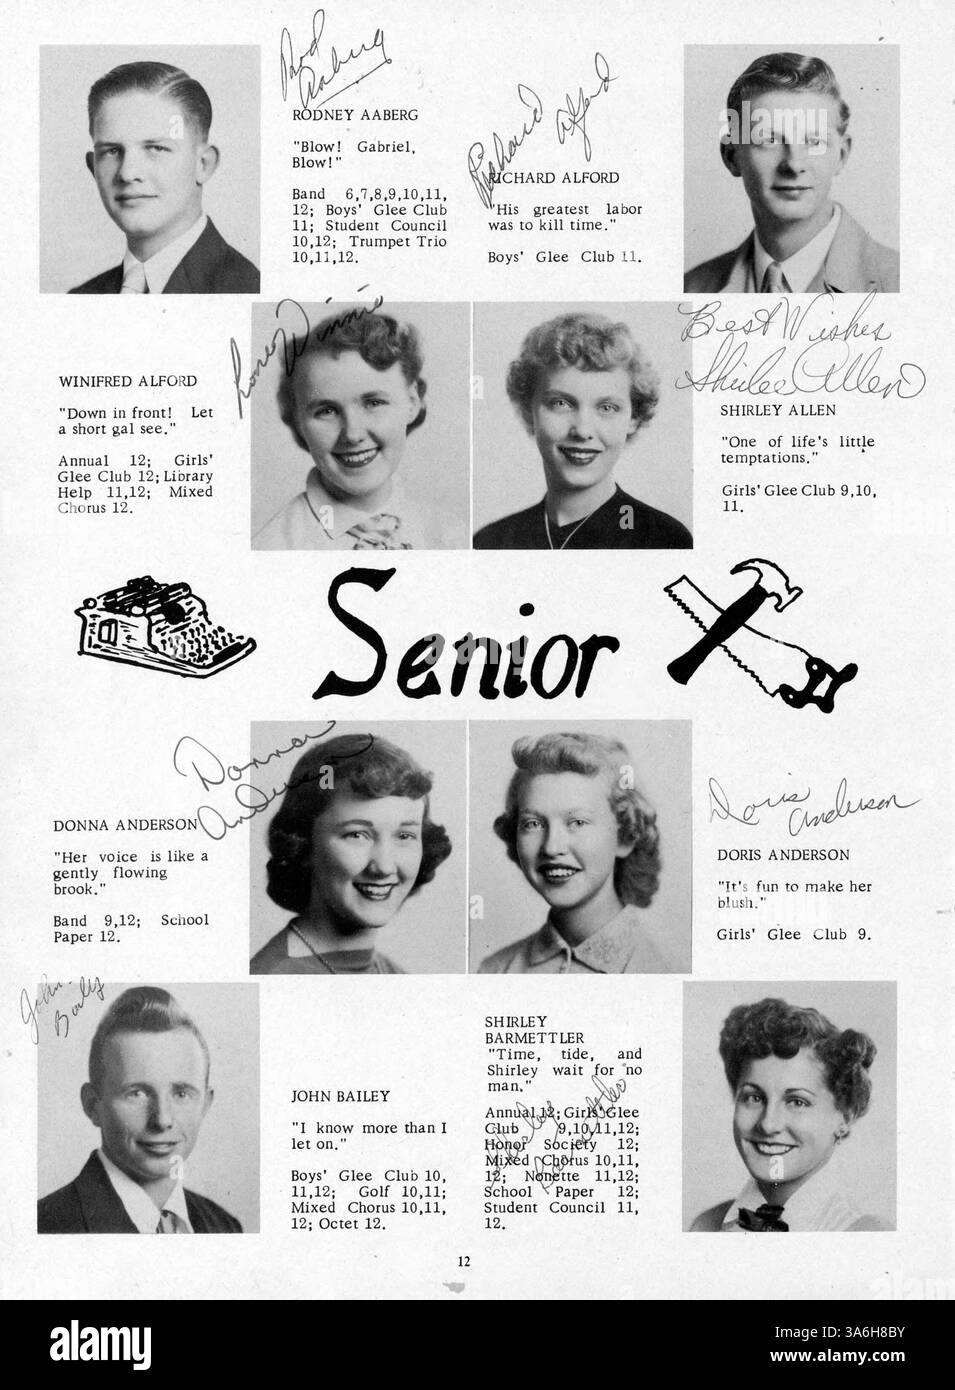 Rod
Aaberg
RODNEY AABERG
"Blow! Gabriel,
Blow!"
Band 6,7,8,9,10,11,
12; Boys' Glee Club
11; Student Council
10,12; Trumpet Trio
10,11,12.
Richard Alford
RICHARD ALFORD
"His greatest labor
was to kill time."
Boys' Glee Club 11.
Love Winnie
WINIFRED ALFORD
"Down in front! Let
a short gal see."
Annual 12; Girls'
Glee Club 12; Library
Help 11,12; Mixed
Chorus 12.
Best Wishes
Shirlee Allen
SHIRLEY ALLEN
"One of life's little
temptations."
Girls' Glee Club 9,10,
11.
Senior
Donna
Anderson
DONNA ANDERSON
"Her voice is like a
gently flowing
brook."
Band 9,12; School
Paper 12.
Doris Anderson
DORIS ANDERSON
"It's fun to make her
blush."
Girls' Glee Club 9.
John
Baily
JOHN BAILEY
"I know more than I
let on."
Boys' Glee Club 10,
11,12; Golf 10,11;
Mixed Chorus 10,11,
12; Octet 12.
SHIRLEY
BARMETTLER
"Time, tide, and
Shirley wait for no
man."
Annual 12; Girls' Glee
Club 9,10,11,12;
Honor Society 12;
Mixed Chorus 10,11,
12; Nonette 11,12;
School Paper 12;
Student Council 11,
12.
Shirley
Barmettler
12
alamy
Image ID: 3A6H8BY
www.alamy.com